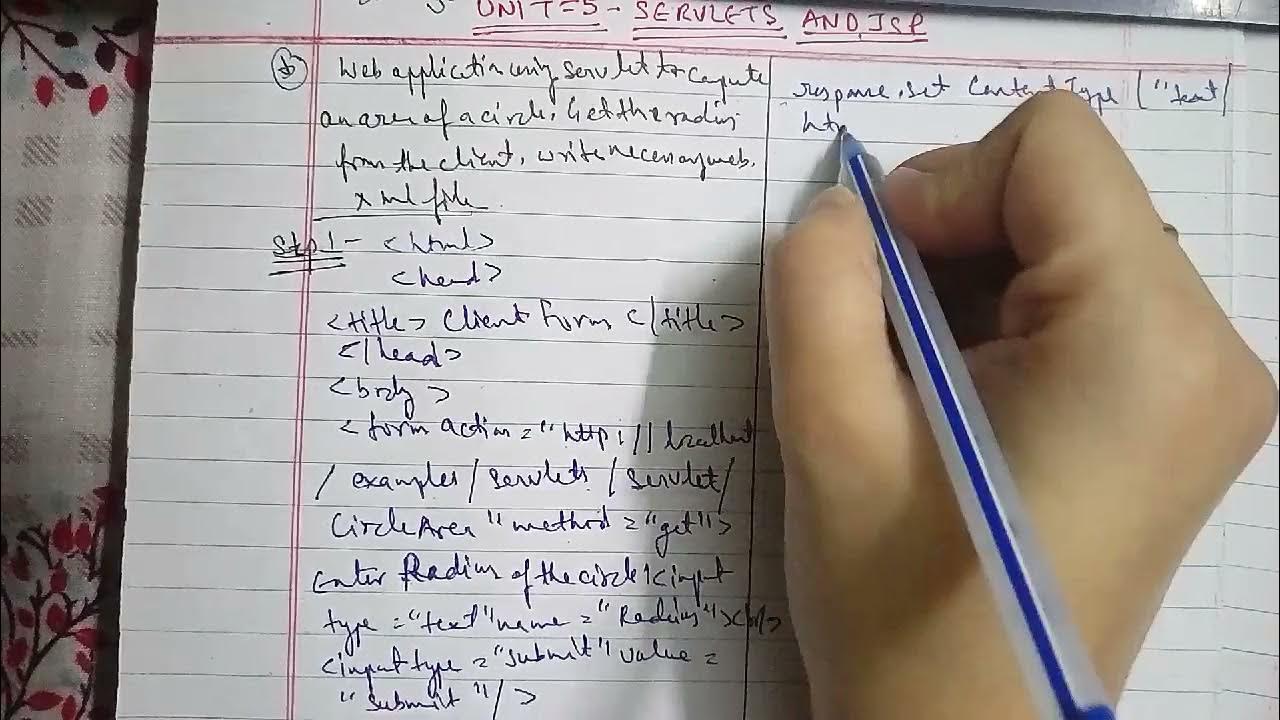 UNIT=5 - SERVLETS AND JSP
Web application using servlet to compute
an area of a circle. Get the radius
from the client, write necessary web.
xml file
Step 1 - <html>
<head>
<title> Client Form </title>
</head>
<body>
<form action = "http://localhost
/examples/servlets/servlet/
CircleArea" method = "get">
Enter Radius of the circle!<input
type = "text" name = "Radius"><br/>
<input type = "submit" value =
"submit"/>
response.set Content Type ("text/
htm